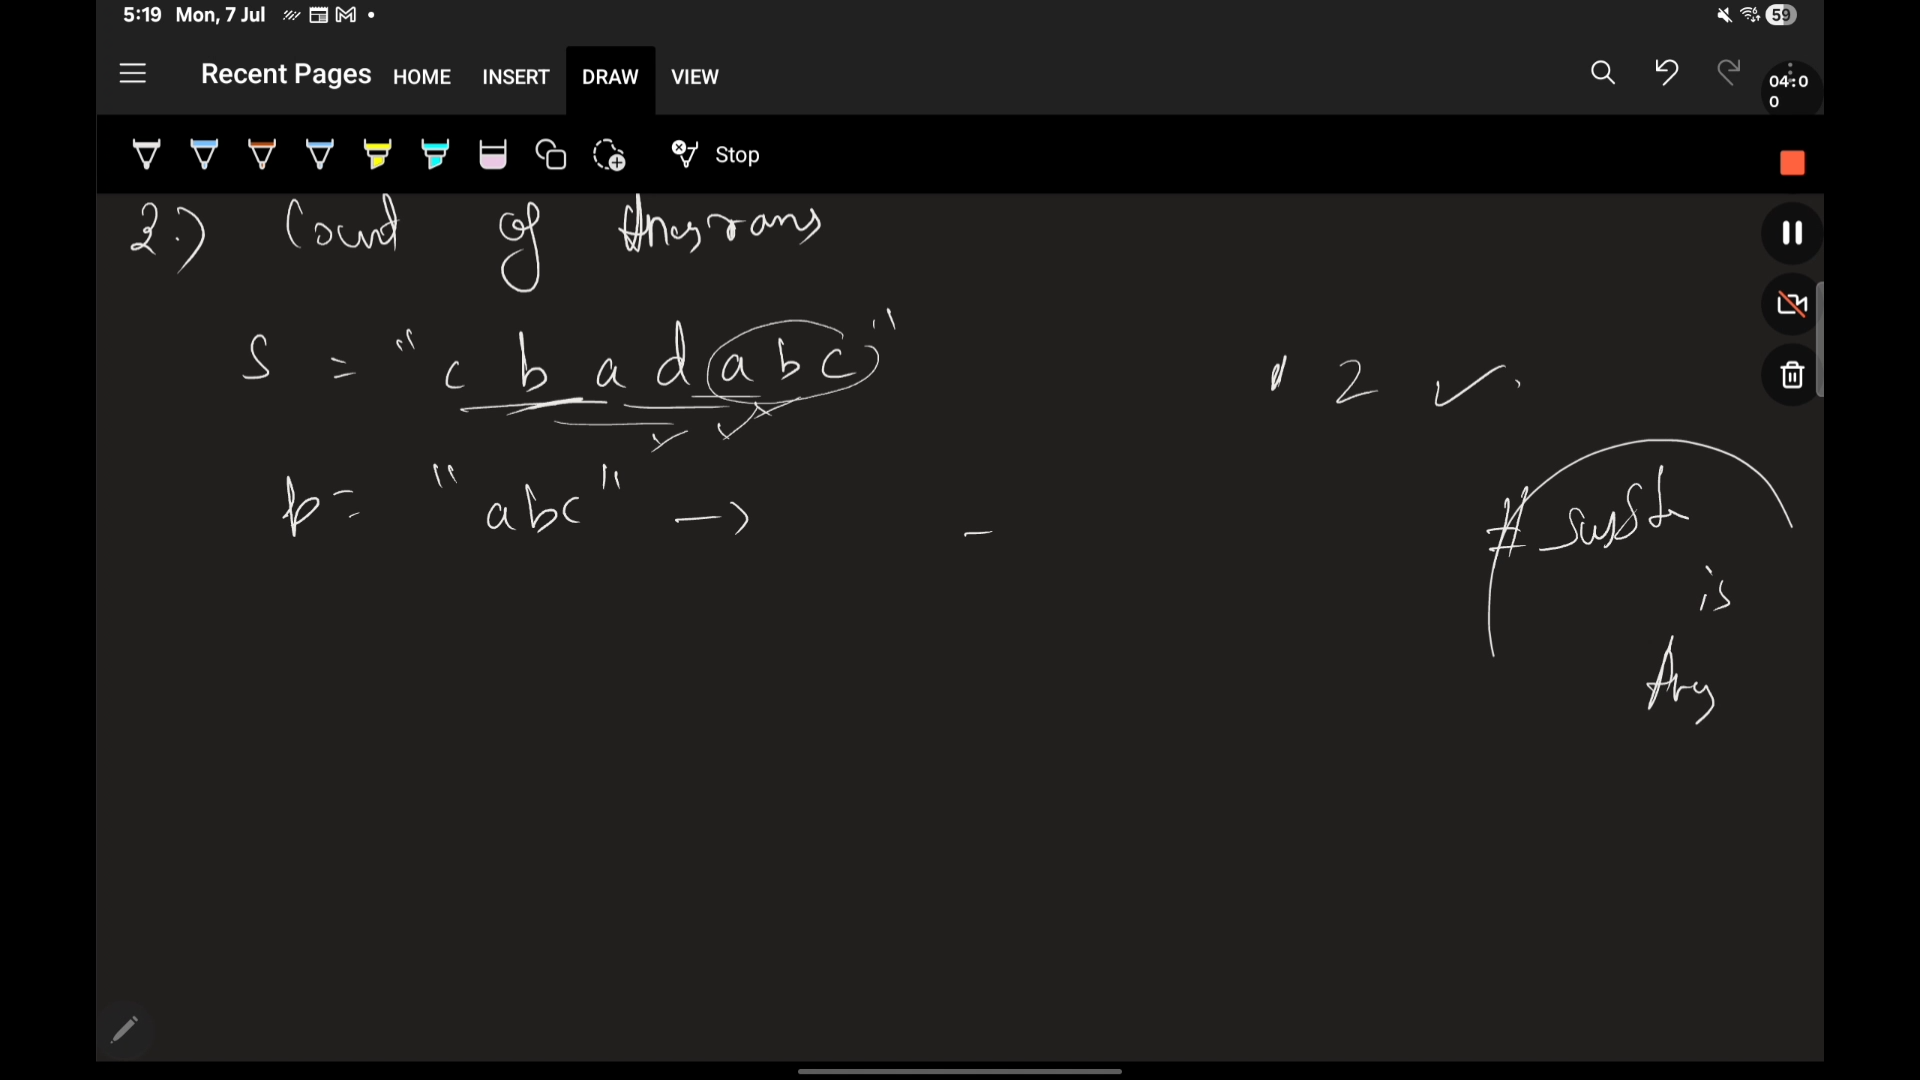 5:19 Mon, 7 Jul 59
Recent Pages HOME INSERT DRAW VIEW
04:00
Stop
2.) Count of Anagrams
S = "c b a d a b c"
2
p = "abc" →
#
is